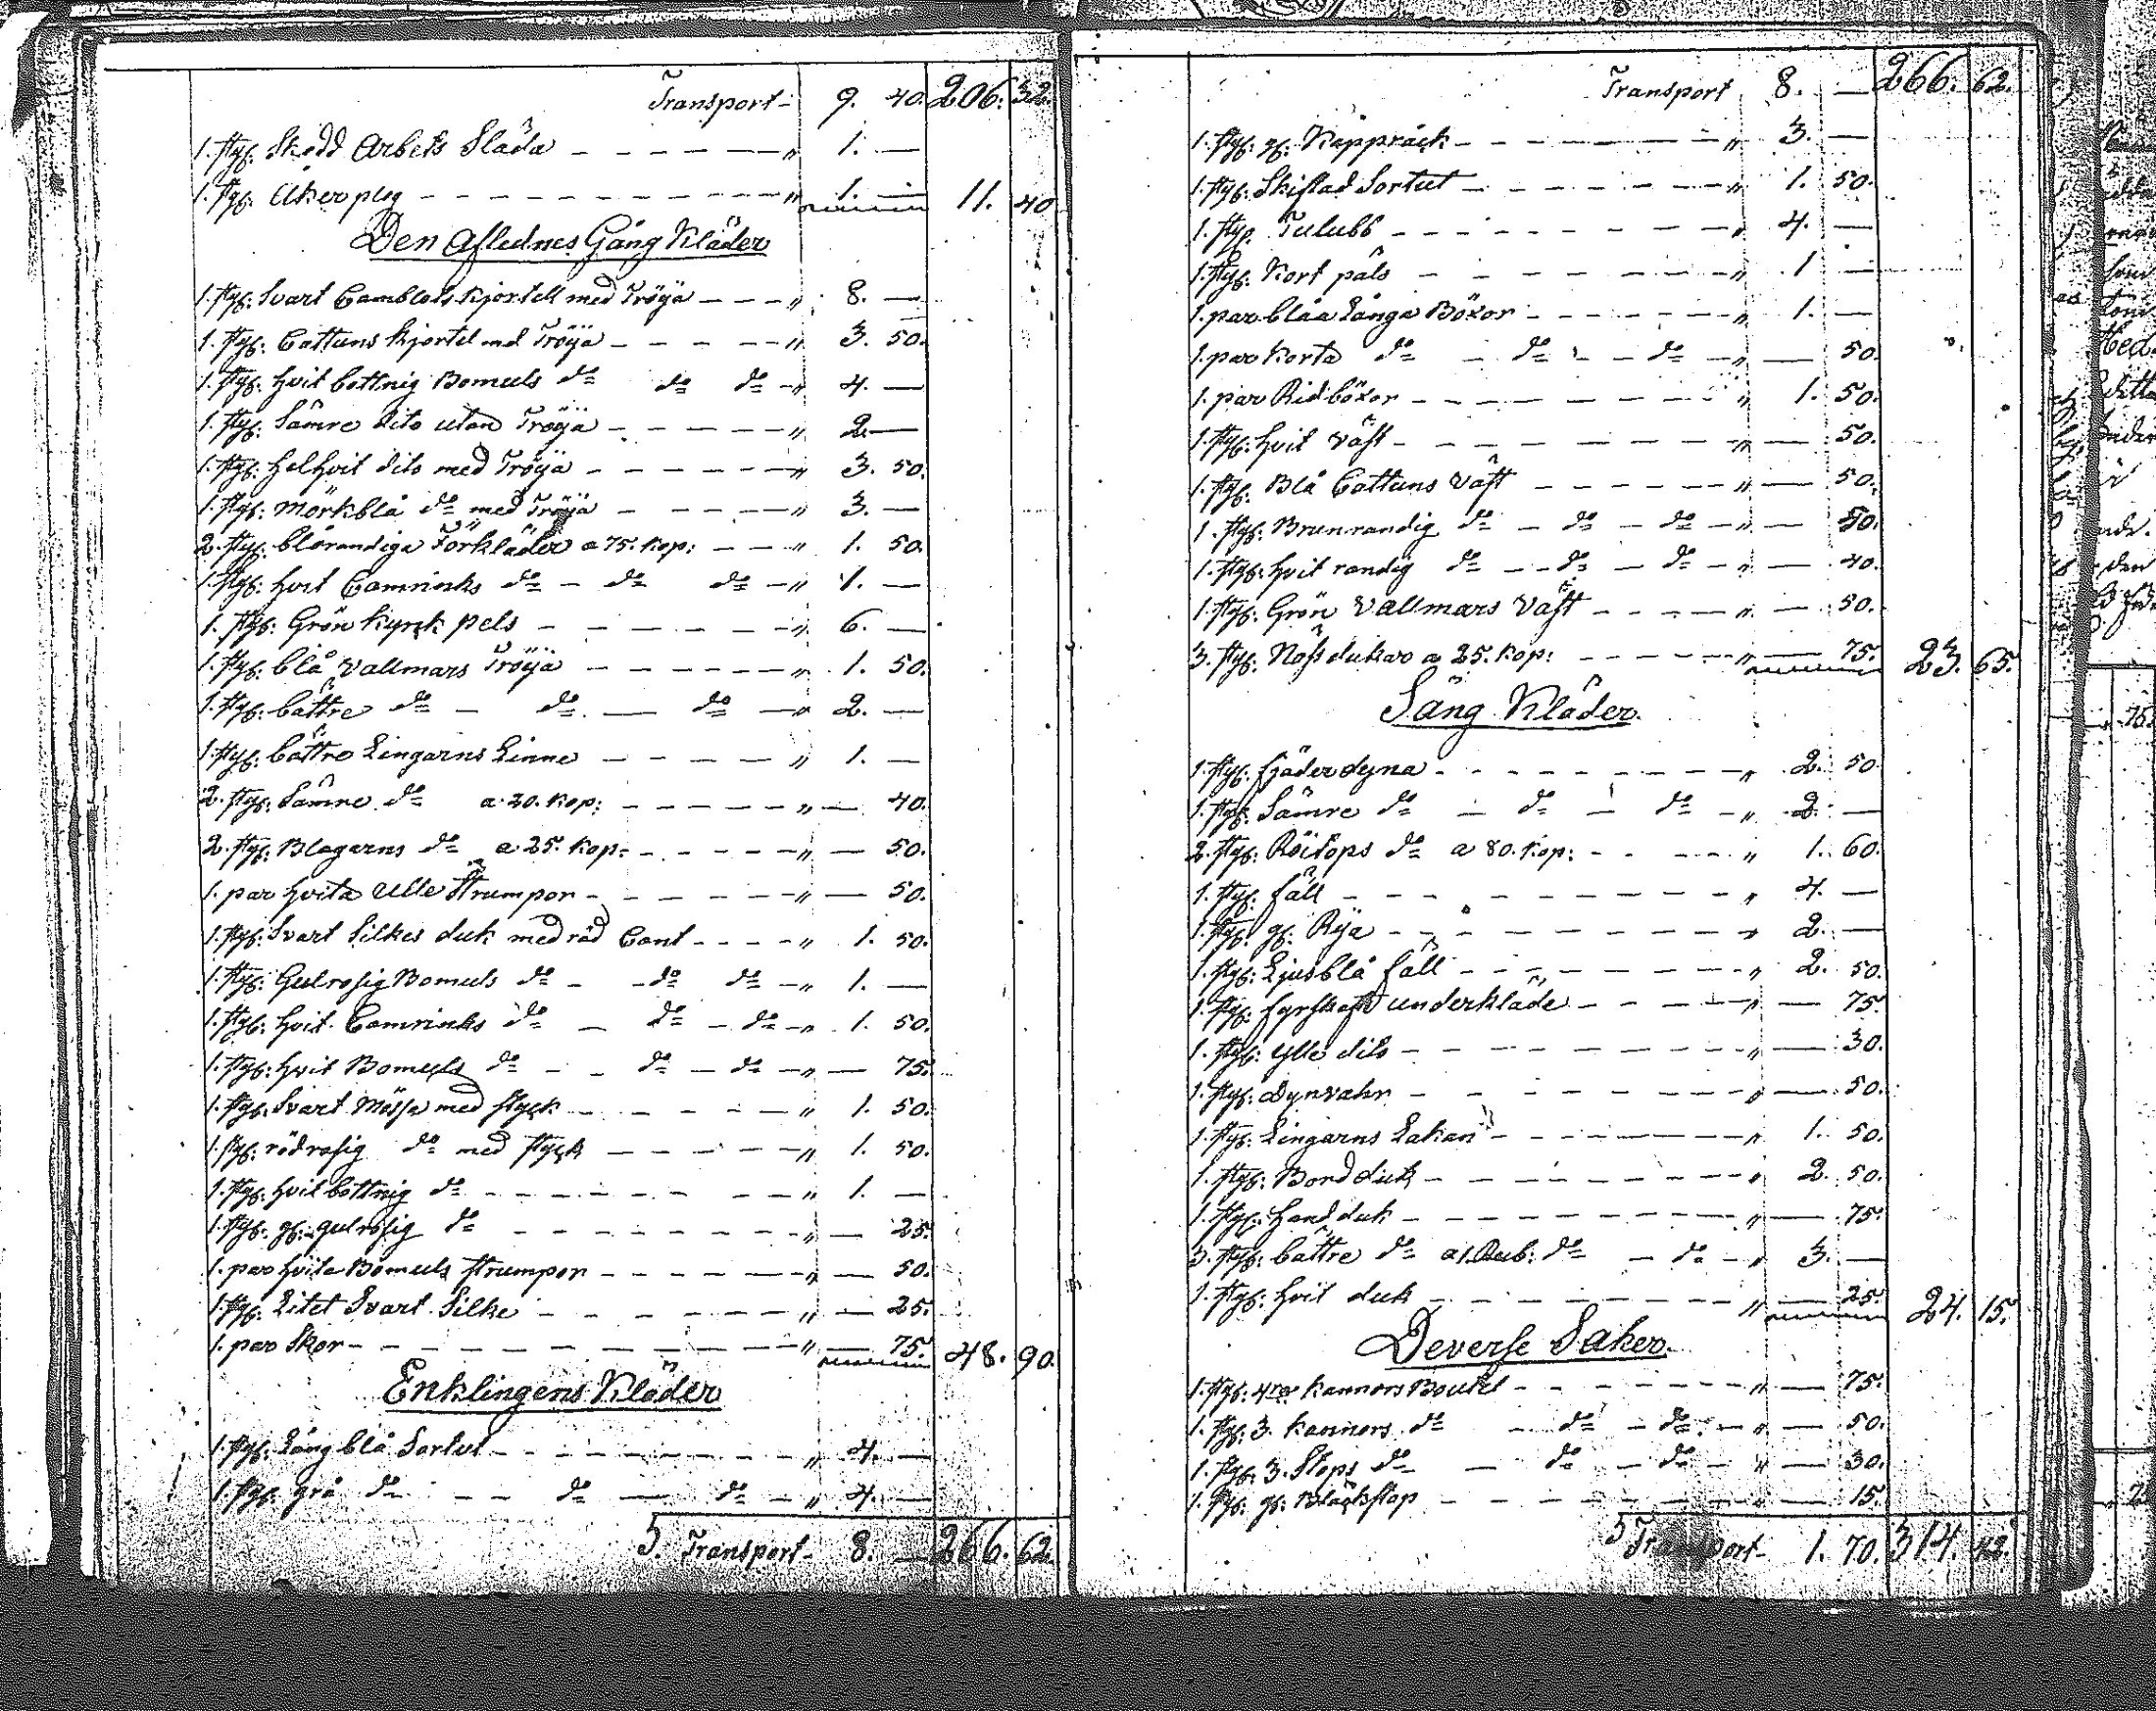 Transport - 9. 40. 206. 32.
1. styk: Skodd Arbets Släda - - - - - - " 1. —
1. styk: Åkerplog - - - - - - - - - " 1. — 11. 40
Den Aflednes Gång Kläder
1. styk: Svart Camblots Kjortell med Tröya - - - " 8. —
1. styk: Cattuns Kjortel med Tröya - - - - - " 3. 50.
1. styk: hvit bottnig Bomuls do do do - " 4. —
1. styk: Sämre dito utan Tröya - - - - - " 2. —
1. styk: helhvit dito med Tröya - - - - - " 3. 50.
1. styk: mörkblå do med Tröya - - - - - " 3. —
2. styk: blårandiga Förkläder a 75. kop: - - - " 1. 50.
1. styk: hvit Camricks do - do do - " 1. —
1. styk: Grön kyrk pels - - - - - - " 6. —
1. styk: blå Vallmars Tröya - - - - - " 1. 50.
1. styk: bättre do - do — do — " 2. —
1. styk: bättre Lingarns Linne - - - - - " 1. —
2. styk: Sämre do a 20. kop: - - - - - " — 40.
2. styk: Blagarns do a 25. kop: - - - - - " — 50.
1. par hvita Ulle Strumpor - - - - - - " — 50.
1. styk: Svart Silkes duk med röd Cant - - - - " 1. 50.
1. styk: Gulrosig Bomuls do - - do do - " 1. —
1. styk: hvit Camricks do - do - do - " 1. 50.
1. styk: hvit Bomuls do - - do - do - " — 75.
1. styk: Svart Mössa med styck - - - - - " 1. 50.
1. styk: rödrosig do med styck - - - - - " 1. 50.
1. styk: hvit bottnig do - - - - - - - - " 1. —
1. styk: gl: gulrosig do - - - - - - - " — 25.
1. par hvita Bomuls strumpor - - - - - - " — 50.
1. styk: Litet Svart Silke - - - - - - - " — 25.
1. par Skor - - - - - - - - - - " — 75. 48. 90.
Enklingens Kläder
1. styk: Lång blå Sortut - - - - - - - - " 4. —
1. styk: grå do - - do — do - " 4. —
Transport - 8. — 266. 62.
Transport 8. — 266. 62.
1. styk: gl: Kapprack - - - - - - - " 3. —
1. styk: Skiftad Sortut - - - - - - - " 1. 50.
1. styk: Tulubb - - - - - - - - " 4. —
1. styk: Kort päls - - - - - - - " 1 —
1. par blåa Långa Böxor - - - - - - " 1. —
1. par Korta do - do - - do - " — 50.
1. par Ridböxor - - - - - - - - " 1. 50.
1. styk: hvit väst - - - - - - - - " — 50.
1. styk: Blå Cattuns väst - - - - - - " — 50.
1. styk: Brunrandig do - do - do - " — 50.
1. styk: hvit randig do - - do - do - " — 40.
1. styk: Grön Vallmars Väst - - - - - " — 50.
3. styk: Näsdukar a 25. kop: - - - - - " — 75. 23. 65.
Säng Kläder.
1. styk: fjäder dyna - - - - - - - - " 2. 50.
1. styk: Sämre do - do - do - " 2. —
2. styk: do a 80. kop: - - - - - " 1. 60.
1. styk: fäll - - - - - - - - - " 4. —
1. styk: gl: Rya - - - - - - - - - " 2. —
1. styk: Ljusblå fäll - - - - - - - " 2. 50.
1. styk: fyrskaft underkläde - - - - - " — 75.
1. styk: Ylle dito - - - - - - - - " — 30.
1. styk: Dynvahr - - - - - - - - " — 50.
1. styk: Lingarns Lakan - - - - - - - " 1. 50.
1. styk: Bord duk - - - - - - - - " 2. 50.
1. styk: hand duk - - - - - - - - " — 75.
3. styk: bättre do a 1. Rub: do - do - " 3. —
1. styk: hvit duk - - - - - - - - " — 25. 24. 15.
Deverse Saker.
1. styk: 4ra kannors Boutel - - - - - - - " — 75.
1. styk: 3. kannors do - do - do - " — 50.
1. styk: 3. Stops do - do - do - " — 30.
1. styk: gl: Bläckstop - - - - - - - - " — 15.
Transport - 1. 70. 314. 42.